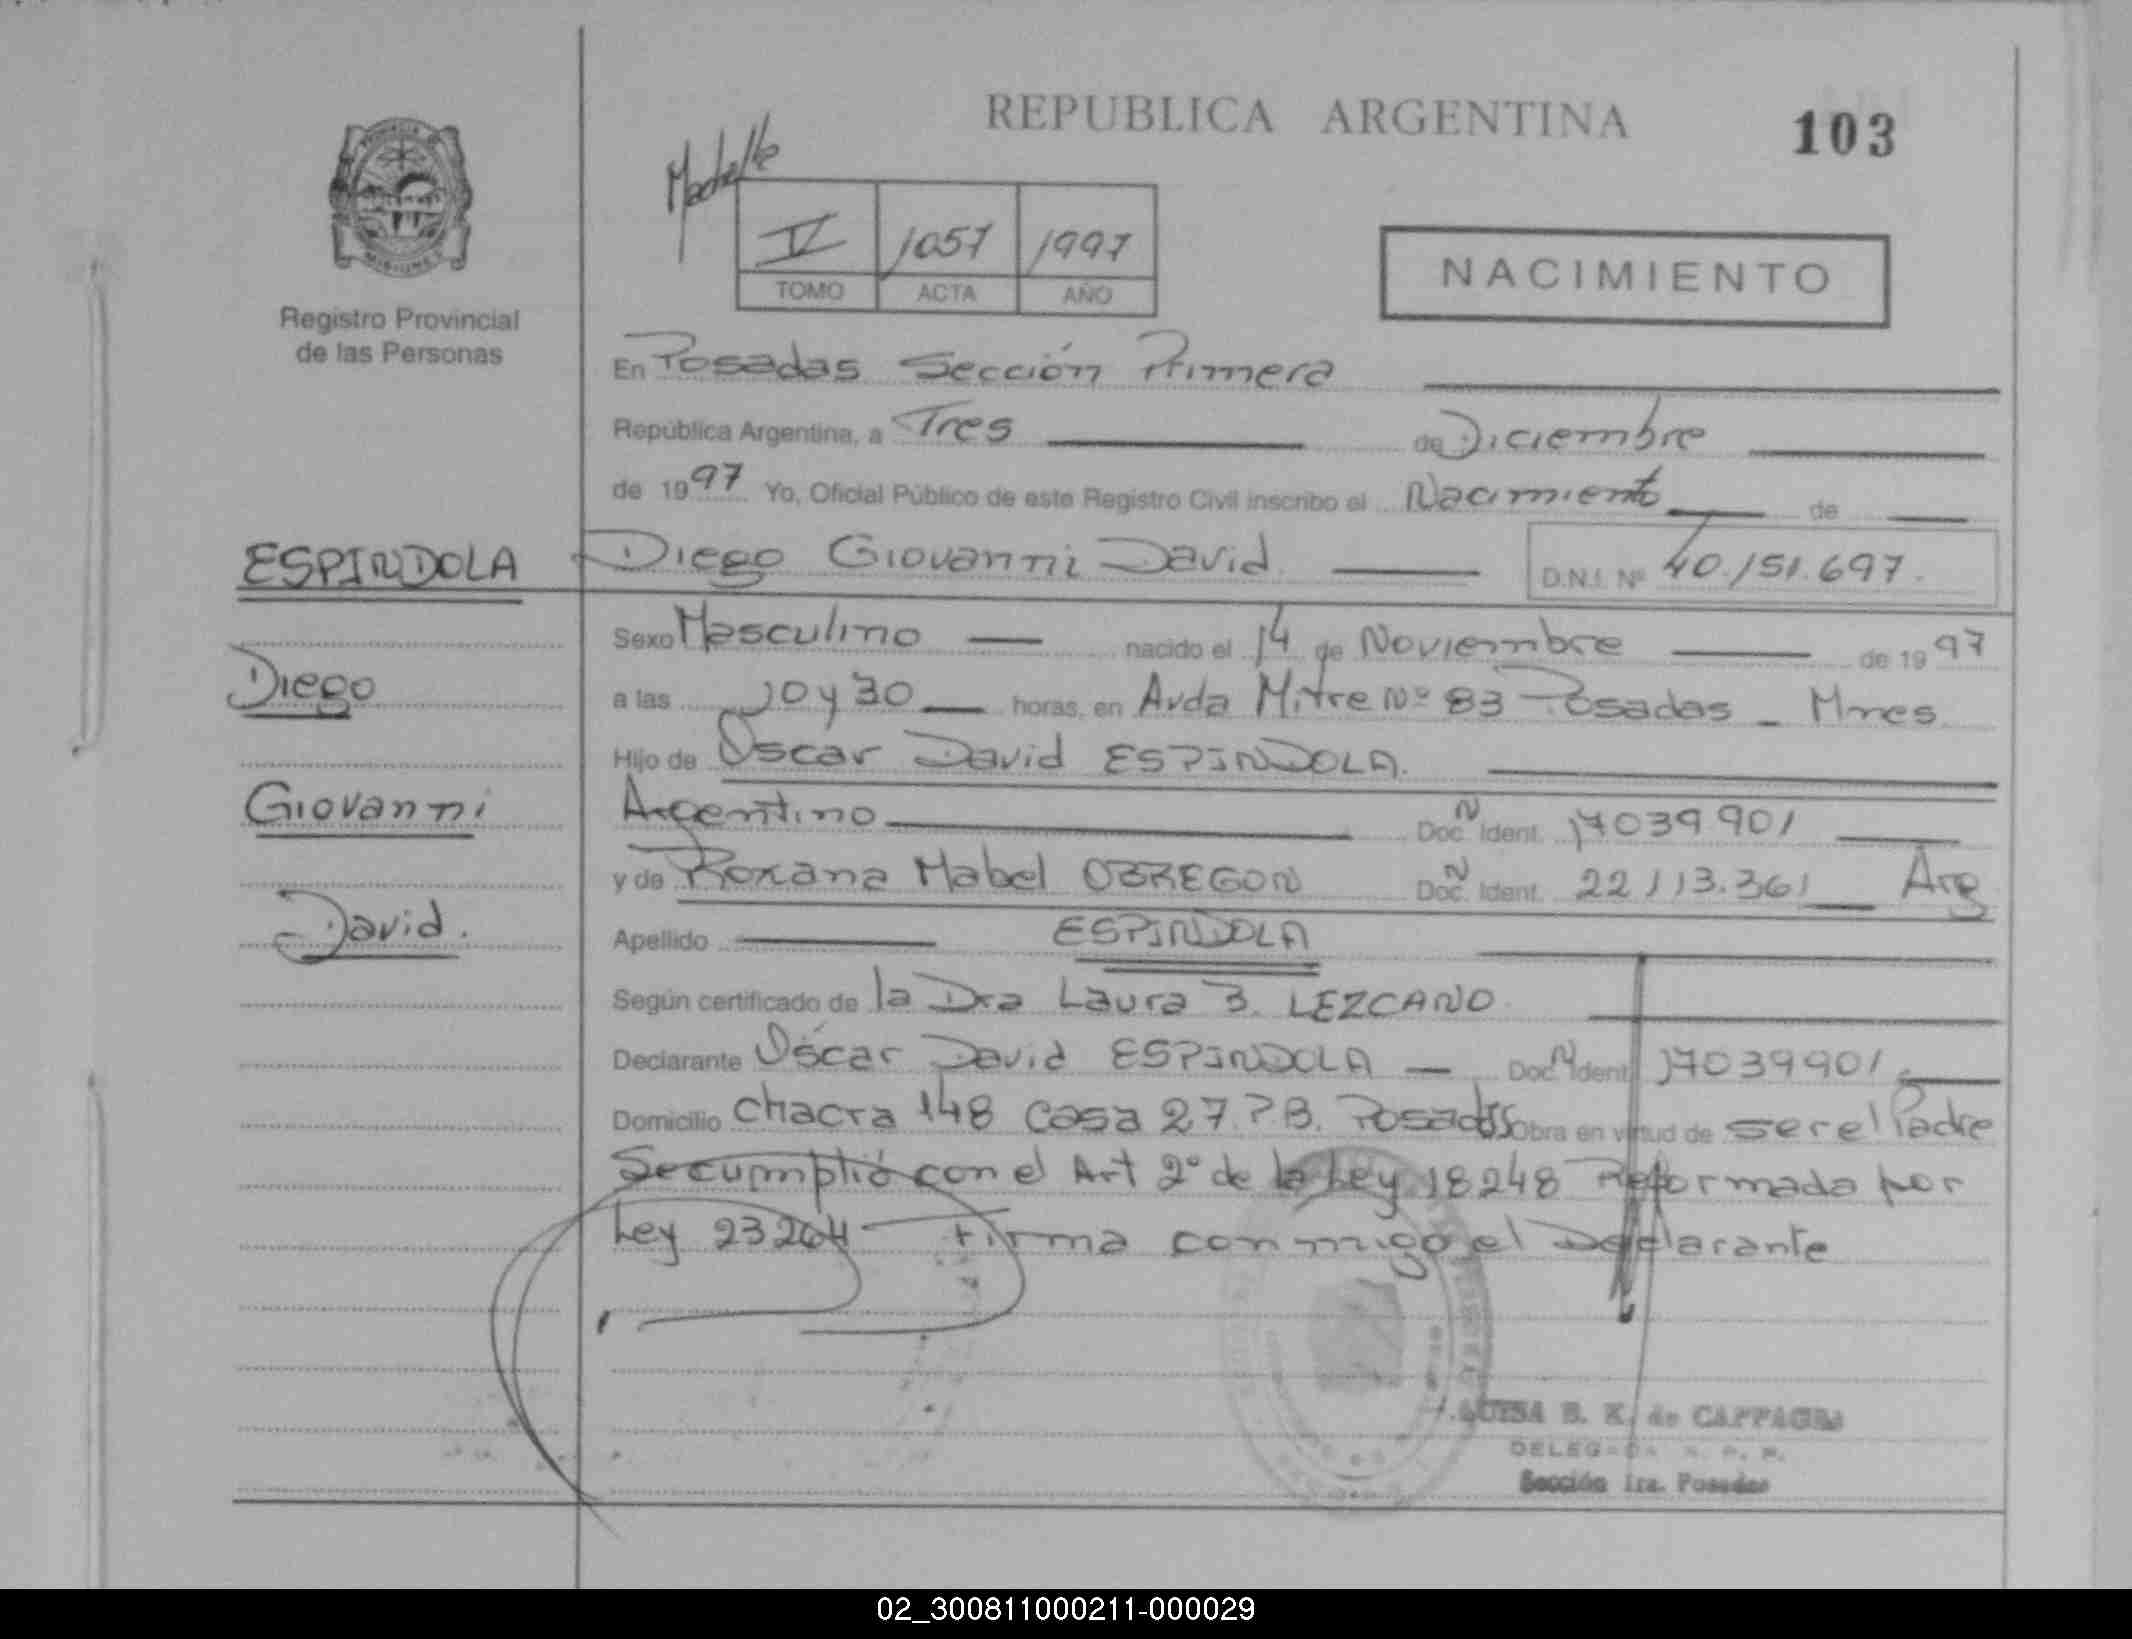 REPUBLICA ARGENTINA
103
V 1057 1997
TOMO ACTA AÑO
NACIMIENTO
Registro Provincial
de las Personas
En Posadas Sección Primera
República Argentina, a Tres de Diciembre
de 1997 Yo, Oficial Público de este Registro Civil inscribo el Nacimiento de
ESPINDOLA Diego Giovanni David D.N.I. Nº 40.151.697.
Sexo Masculino nacido el 14 de Noviembre de 1997
Diego
a las 10 y 30 horas, en Avda Mitre Nº 83 Posadas - Mnes.
Hijo de Oscar David ESPINDOLA.
Giovanni
Argentino Doc. N Ident. 17039901
y de Roxana Mabel OBREGON Doc. N Ident. 22113.361 Arg
David.
Apellido ESPINDOLA
Según certificado de la Dra Laura B. LEZCANO
Declarante Oscar David ESPINDOLA - Doc. N Ident. 17039901
Domicilio chacra 148 casa 27. P.B. Posadas Obra en virtud de ser el Padre
Se cumplió con el Art 2º de la Ley 18248 Reformada por
Ley 23264 - Firma conmigo el Declarante
DELEGADA R. P. P.
Sección 1ra. Posadas
02_300811000211-000029